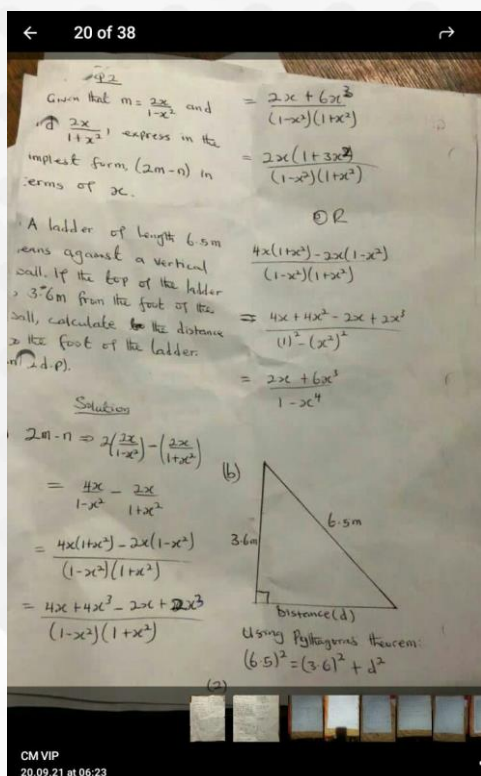 20 of 38
Q2
Given that m = 2x/1-x² and
2x/1+x², express in the
implest form, (2m-n) in
erms of x.
. A ladder of length 6.5m
eans against a vertical
wall. If the top of the ladder
3.6m from the foot of the
wall, calculate the distance
the foot of the ladder.
2 d.p).
Solution
2m-n ⇒ 2(2x/1-x²) - (2x/1+x²)
= 4x/1-x² - 2x/1+x²
= 4x(1+x²) - 2x(1-x²)/(1-x²)(1+x²)
= 4x + 4x³ - 2x + 2x³/(1-x²)(1+x²)
= 2x + 6x³/(1-x²)(1+x²)
= 2x(1+3x²)/(1-x²)(1+x²)
OR
4x(1+x²) - 2x(1-x²)/(1-x²)(1+x²)
= 4x + 4x² - 2x + 2x³/(1)² - (x²)²
= 2x + 6x³/1 - x⁴
(b)
3.6m
6.5m
Distance(d)
Using Pythagoras theorem:
(6.5)² = (3.6)² + d²
(2)
CM VIP
20.09.21 at 06:23